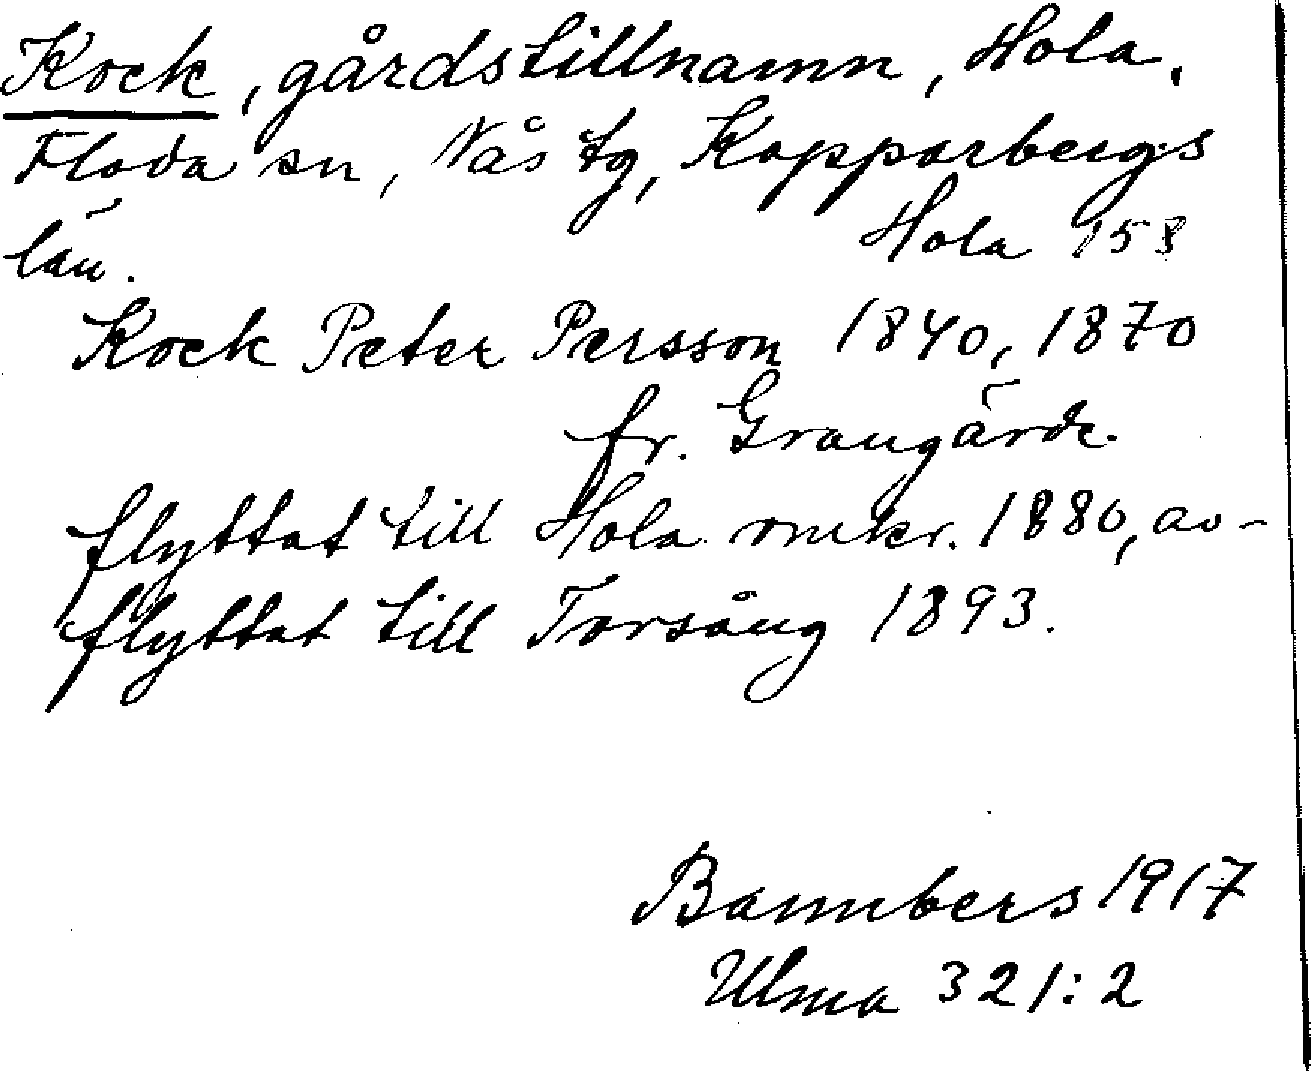 Kock, gårdstillnamn, Hola,
Floda sn, Nås tg, Kopparbergs
län. Hola 158
Kock Peter Persson 1840, 1870
fr. Grangärde.
flyttat till Hola omkr. 1880, av-
flyttat till Torsång 1893.
Bannbers 1917
Ulma 321:2